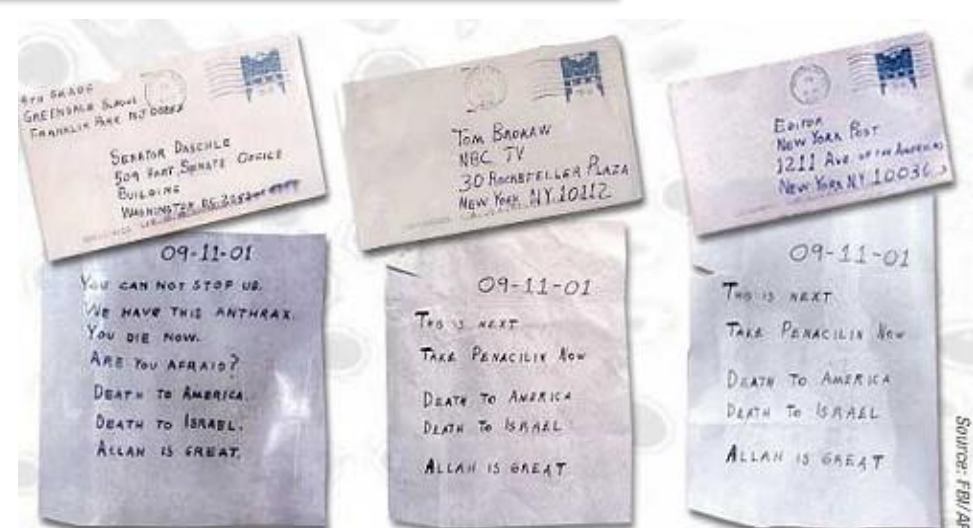 4TH GRADE
GREENDALE SCHOOL
FRANKLIN PARK NJ 08852
SENATOR DASCHLE
509 HART SENATE OFFICE
BUILDING
WASHINGTON D.C. 20510
09-11-01
YOU CAN NOT STOP US.
WE HAVE THIS ANTHRAX.
YOU DIE NOW.
ARE YOU AFRAID?
DEATH TO AMERICA.
DEATH TO ISRAEL.
ALLAH IS GREAT.
TOM BROKAW
NBC TV
30 ROCKEFELLER PLAZA
NEW YORK NY 10112
09-11-01
THIS IS NEXT
TAKE PENACILIN NOW
DEATH TO AMERICA
DEATH TO ISRAEL
ALLAH IS GREAT
EDITOR
NEW YORK POST
1211 AVE. OF THE AMERICAS
NEW YORK NY 10036
09-11-01
THIS IS NEXT
TAKE PENACILIN NOW
DEATH TO AMERICA
DEATH TO ISRAEL
ALLAH IS GREAT
Source: FBI/A